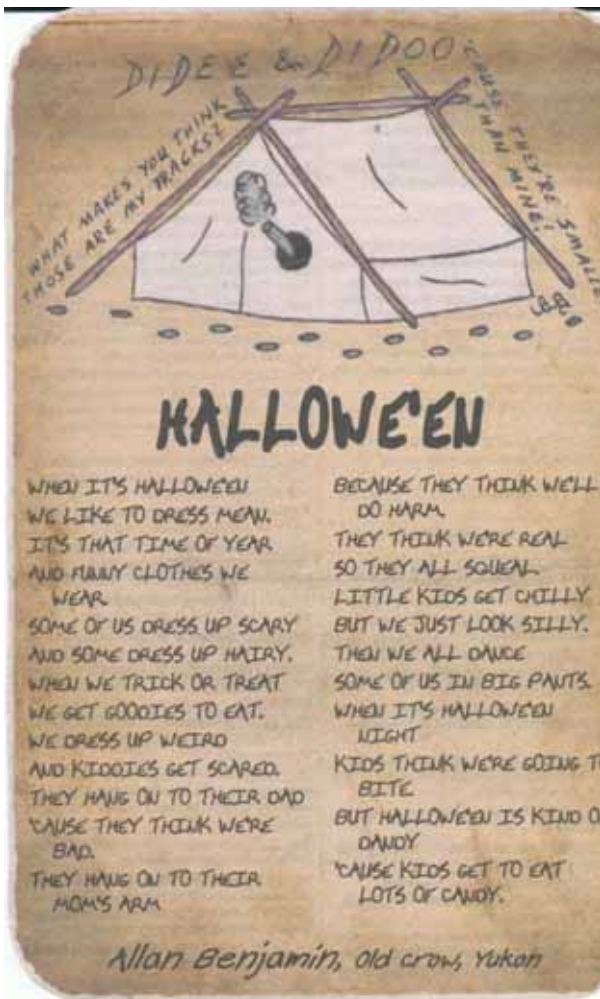 DIDEE & DIDOO
WHAT MAKES YOU THINK
THOSE ARE MY TRACKS?
'CAUSE THEY'RE SMALLE
THAN MINE!
HALLOWE'EN
WHEN IT'S HALLOWE'EN
WE LIKE TO DRESS MEAN.
IT'S THAT TIME OF YEAR
AND FUNNY CLOTHES WE
WEAR
SOME OF US DRESS UP SCARY
AND SOME DRESS UP HAIRY.
WHEN WE TRICK OR TREAT
WE GET GOODIES TO EAT.
WE DRESS UP WEIRD
AND KIDDIES GET SCARED.
THEY HANG ON TO THEIR DAD
'CAUSE THEY THINK WE'RE
BAD.
THEY HANG ON TO THEIR
MOM'S ARM
BECAUSE THEY THINK WE'LL
DO HARM.
THEY THINK WE'RE REAL
SO THEY ALL SQUEAL
LITTLE KIDS GET CHILLY
BUT WE JUST LOOK SILLY.
THEN WE ALL DANCE
SOME OF US IN BIG PANTS.
WHEN IT'S HALLOWE'EN
NIGHT
KIDS THINK WE'RE GOING TO
BITE
BUT HALLOWE'EN IS KIND O
DANDY
'CAUSE KIDS GET TO EAT
LOTS OF CANDY.
Allan Benjamin, Old Crow, Yukon